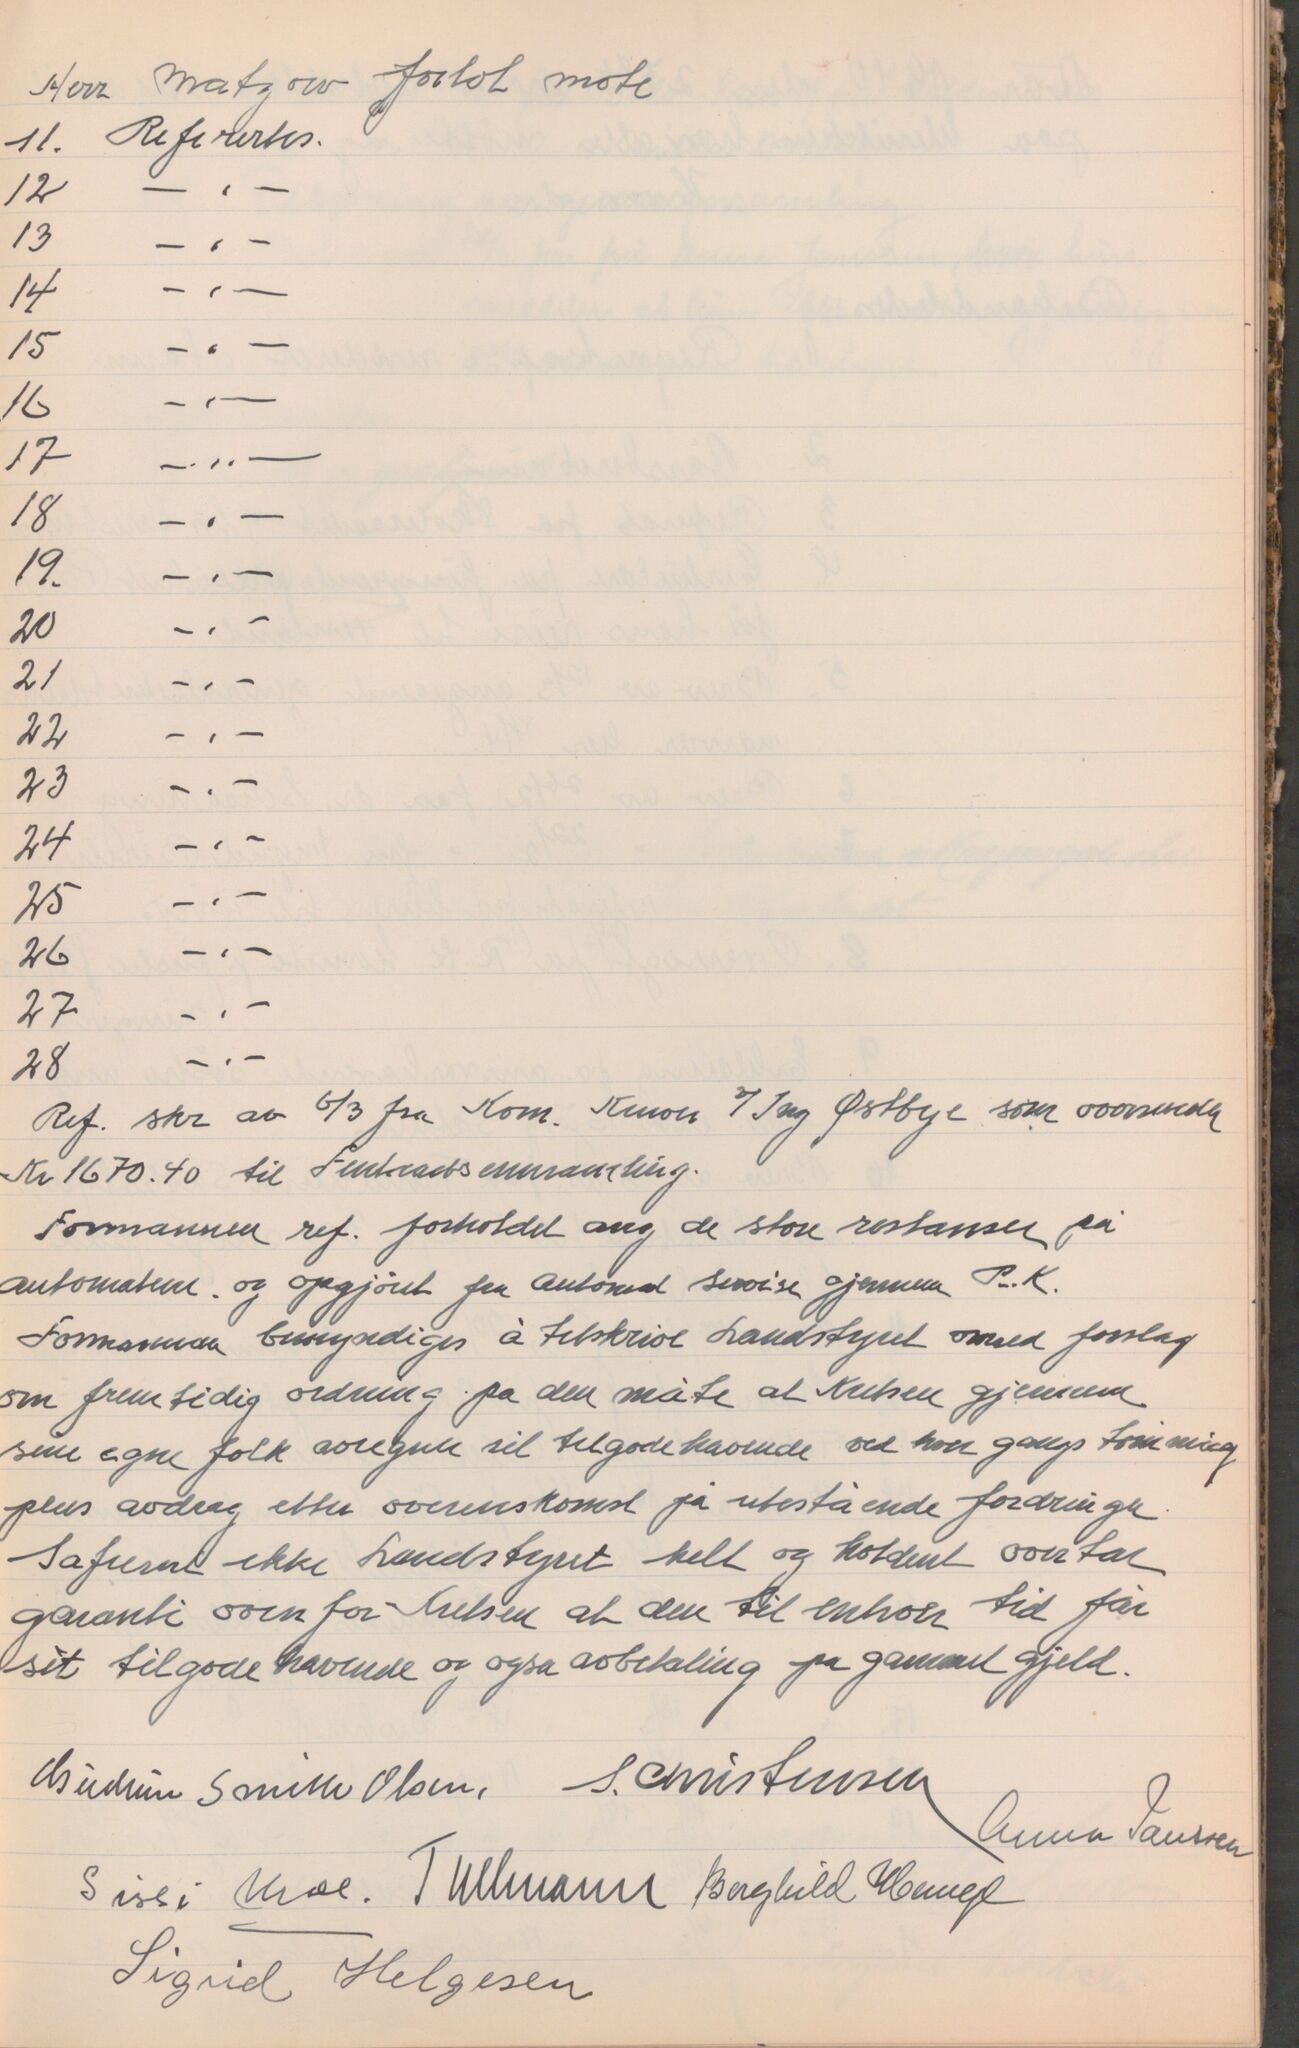 Herr Matzow forlot møte
11. Refererbes.
12 — " —
13 — " —
14 — " —
15 — " —
16 — " —
17 — " —
18 — " —
19. — " —
20 — " —
21 — " —
22 — " —
23 — " —
24 — " —
25 — " —
26 — " —
27 — " —
28 — " —
Ref. skr av 6/3 fra Kom. Kinoer v/ Ing Østbye som oversender
Kr 1670.40 til
Formannen ref. forholdet ang de store restanser på
automatene. og opgjöret fra Automat Servise gjennem P.K.
Formannen bemyndiges å tilskrive Landstyret med forslag
om fremtidig ordning på den måte at Nielsen gjennem
sine egne folk avregner sit tilgodehavende ved hver gangs tömming
plus avdrag etter overenskomst på utestående fordringer.
Safremt ikke Landstyret helt og holdent overtar
garanti overfor Nielsen at den til enhver tid får
sit tilgodehavende og ogsa avbetaling pa gammel gjeld.
Gudrun Smith Olsen. S. Christensen
Anna Janssen
Sissi T Ullmann Borghild
Sigrid Helgesen